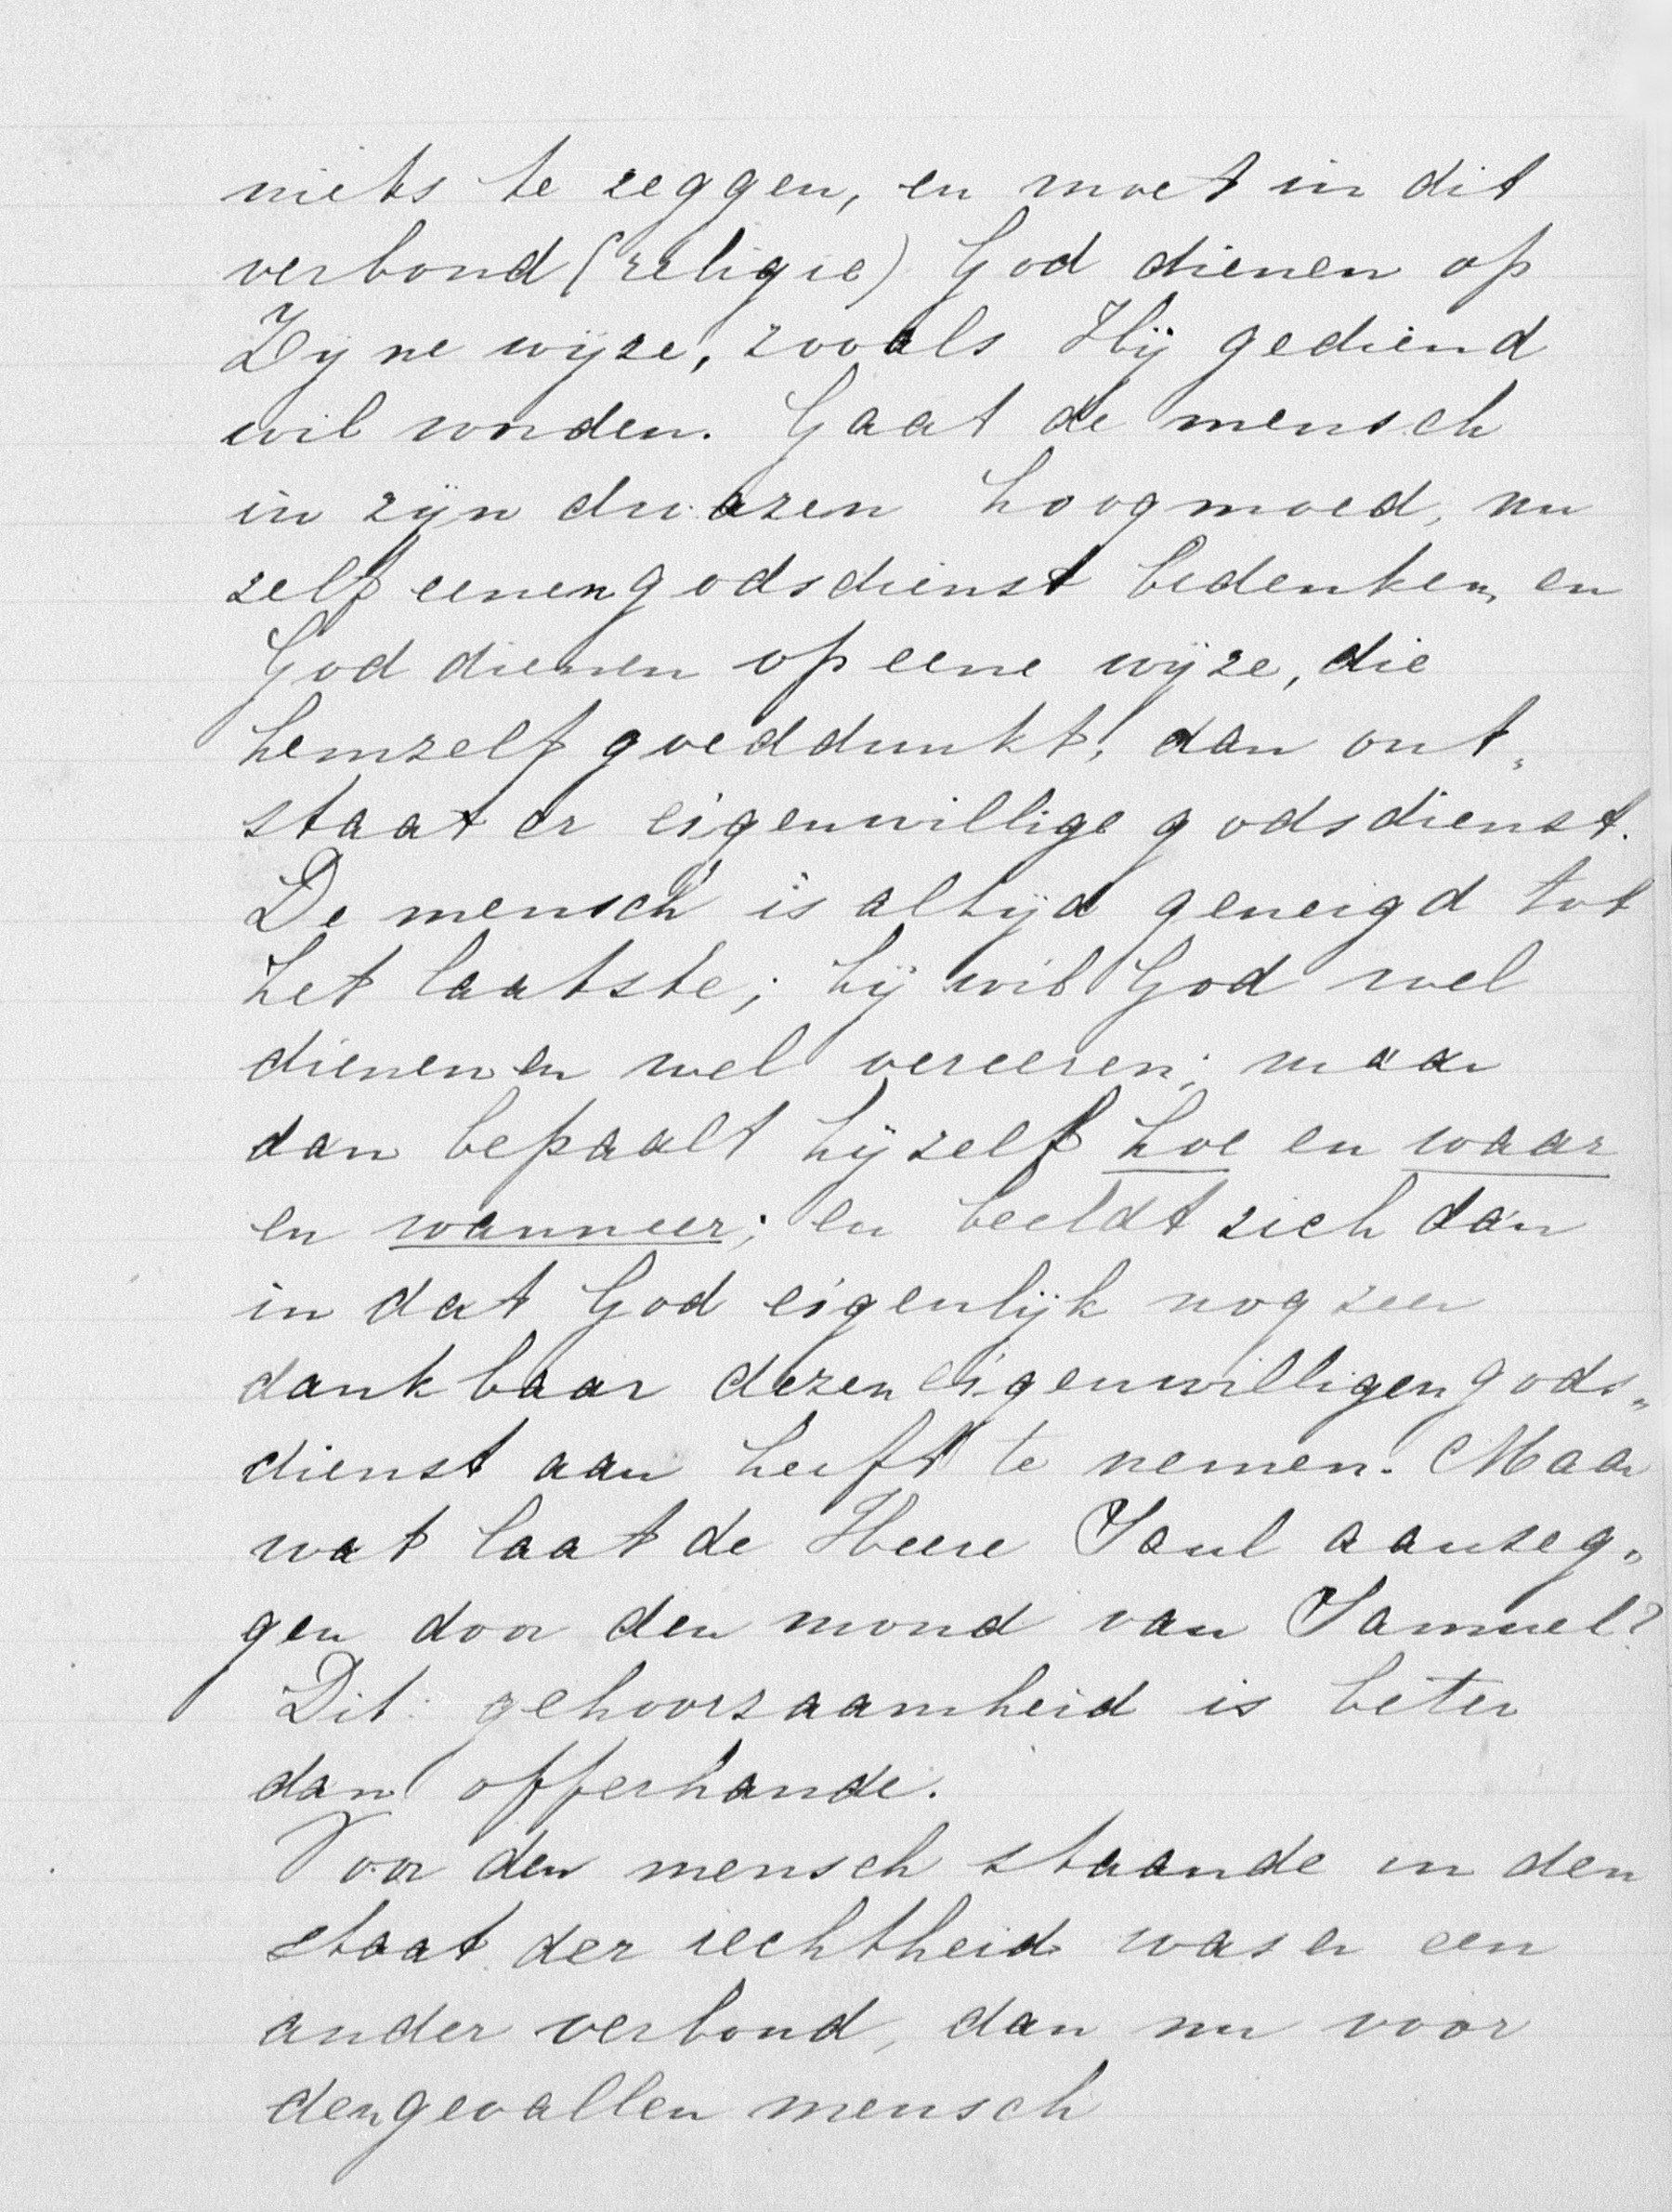 niets te zeggen, en moet in dit
verbond (religie) God dienen op
Zijne wijze, zooals Hij gediend
wil worden. Gaat de mensch
in zijn dwazen hoogmoed, nu
zelf eenen godsdienst bedenken, en
God dienen op eene wijze, die
hemzelf goeddunkt, dan ont„
staat er eigenwillige godsdienst.
De mensch is altijd geneigd tot
het laatste; hij wil God wel
dienen en wel vereeren; maar
dan bepaalt hij zelf hoe en waar
en wanneer; en beeldt zich dan
in dat God eigenlijk nog zeer
dankbaar dezen eigenwilligen gods„
dienst aan heeft te nemen. Maar
wat laat de Heere Saul aanzeg„
gen door den mond van Samuel?
Dit: gehoorzaamheid is beter
dan offerhande.
Voor den mensch staande in den
staat der rechtheid was er een
ander verbond, dan nu voor
den gevallen mensch